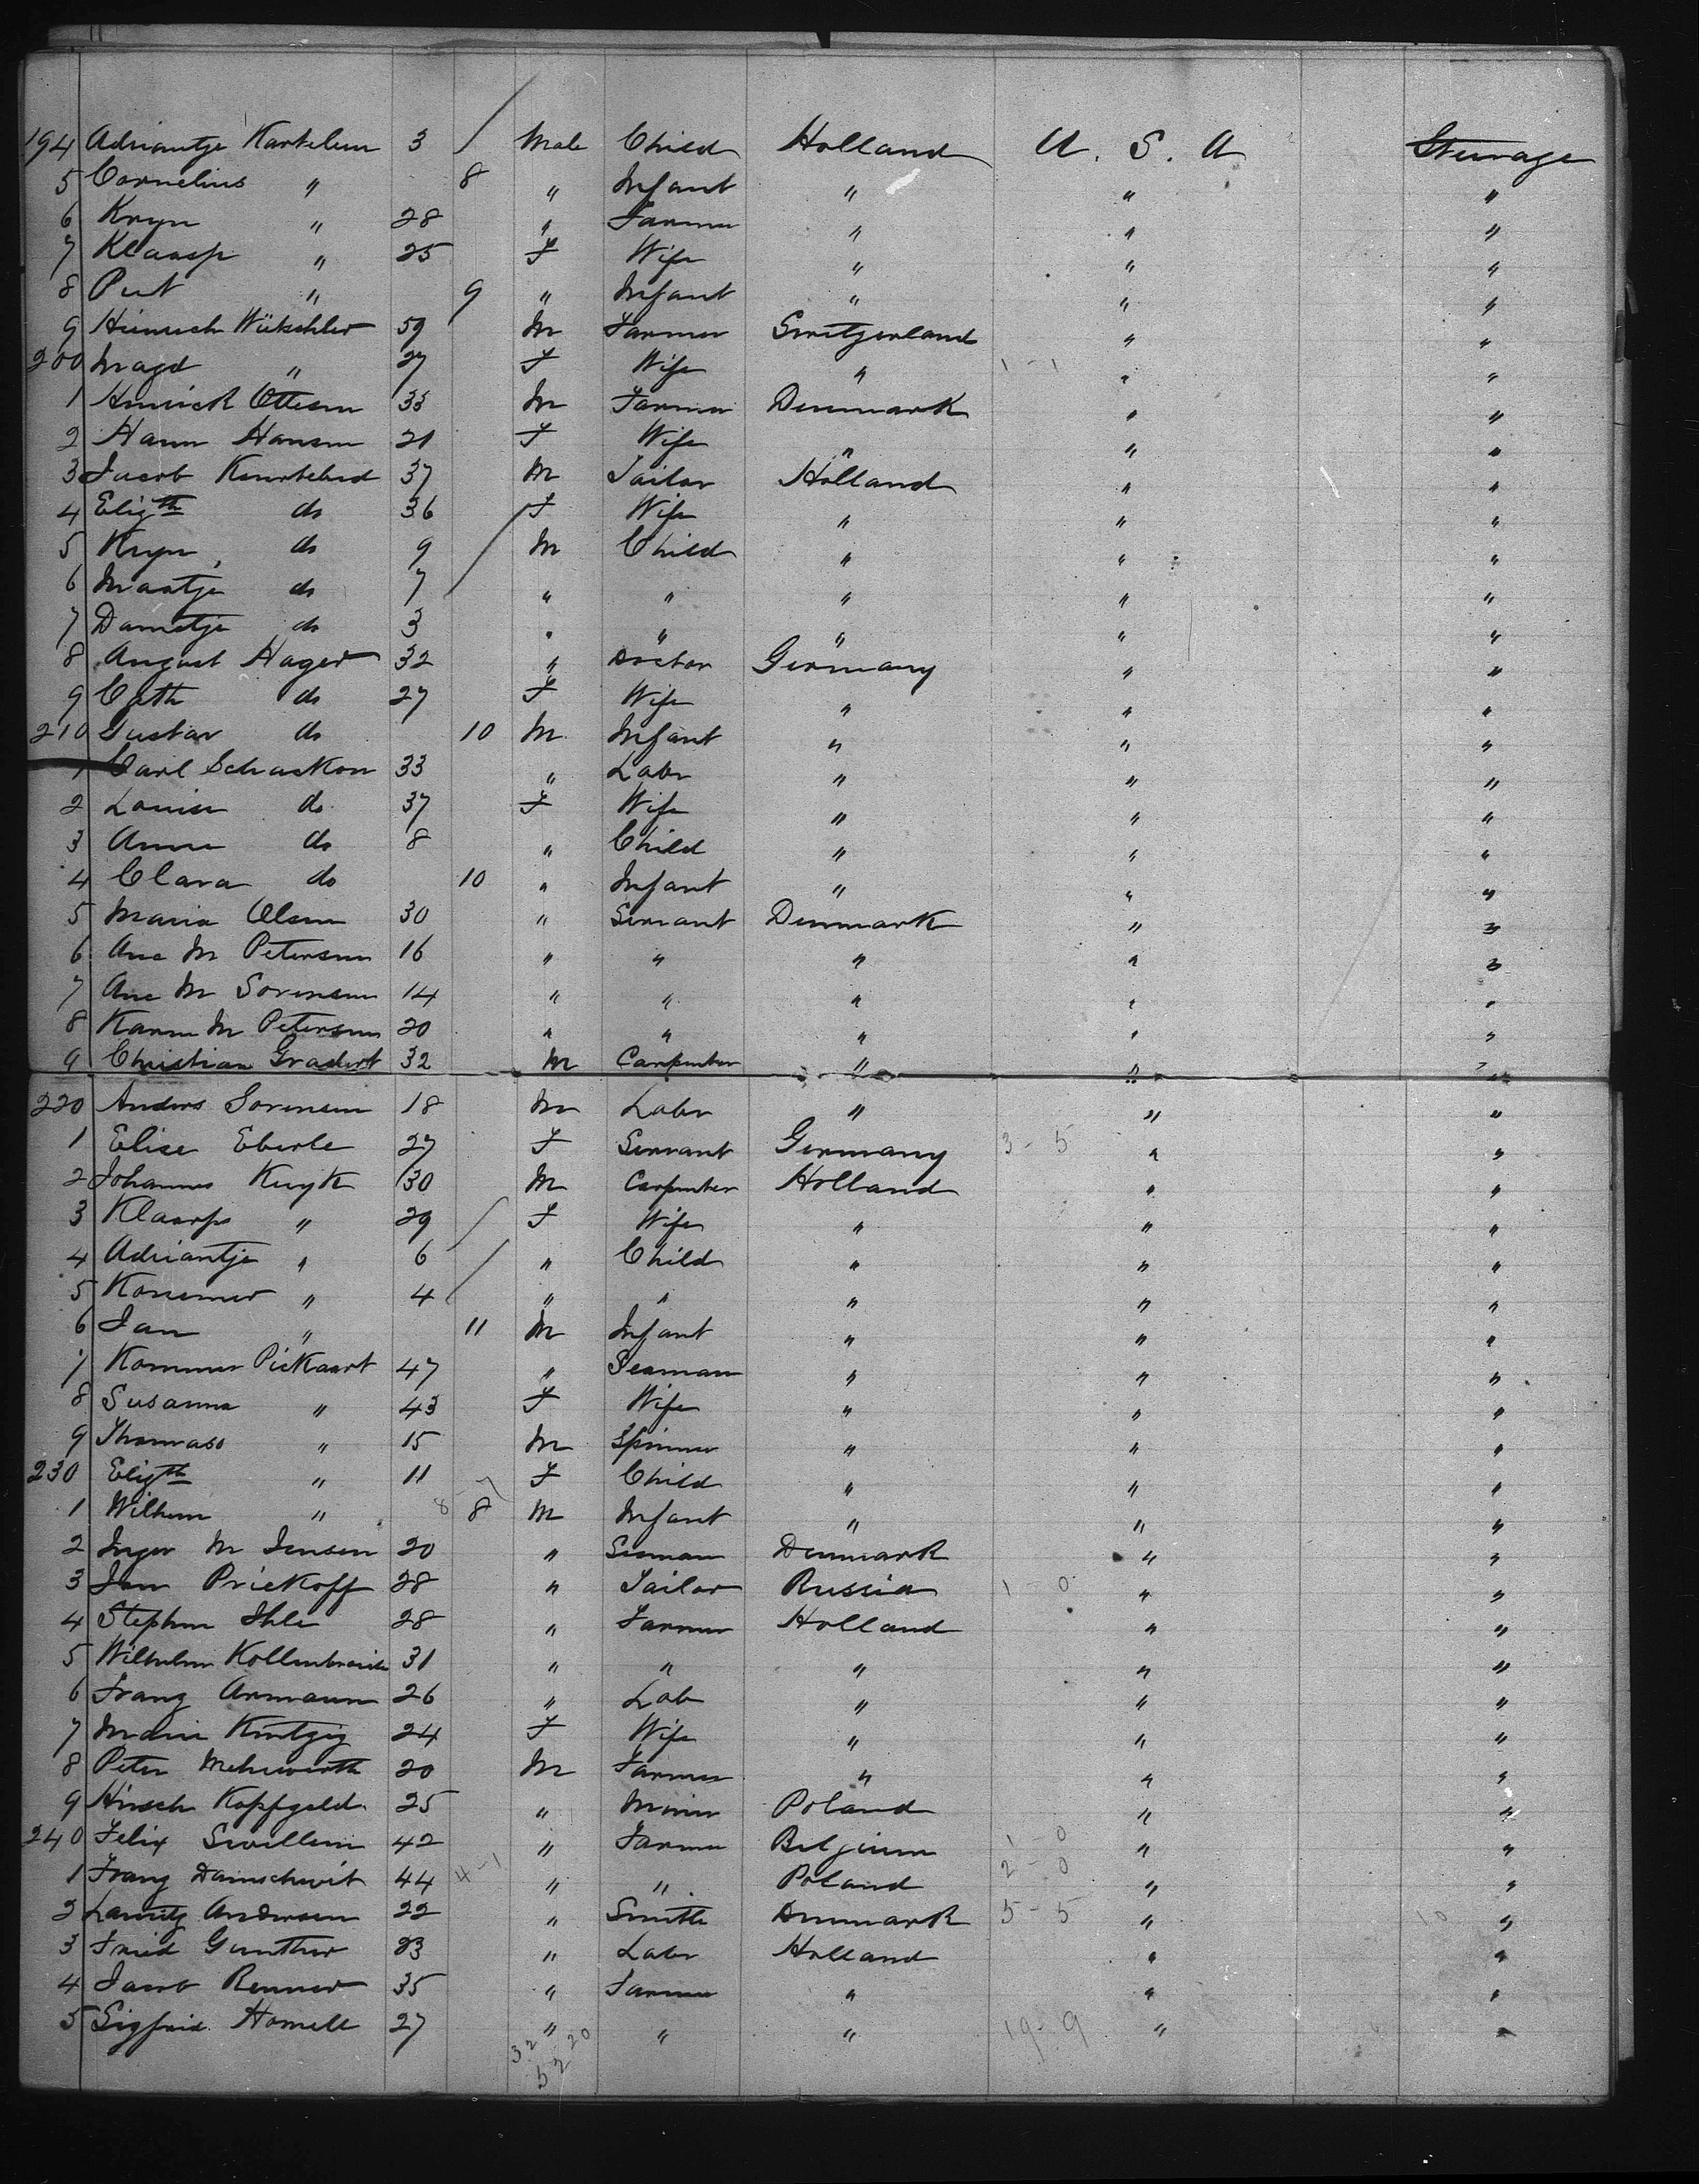 194 Adriantje Kartelem 3 Male Child Holland U. S. A Steerage
5 Cornelius " 8 " Infant " " "
6 Kryn " 28 " Farmer " " "
7 Klaasp " 25 F Wife " " "
8 Piet " 9 " Infant " " "
9 Heinrich Wütschler 59 M Farmer Switzerland " "
200 Magd " 27 F Wife " 1 - 1 " "
1 Hinrick Ottesen 33 M Farmer Denmark " "
2 Hann Hansen 21 F Wife " " "
3 Jacob 37 M Tailor Holland " "
4 Elizth do 36 F Wife " " "
5 Kryn do 9 M Child " " "
6 Maatje do 7 " " " " "
7 Dametje do 3 " " " " "
8 August Hager 32 " Doctor Germany " "
9 Cath do 27 F Wife " " "
210 Gustav do 10 M Infant " " "
1 Carl Schackon 33 " Labr " " "
2 Louise do 37 F Wife " " "
3 Anna do 8 " Child " " "
4 Clara do 10 " Infant " " "
5 Maria Olsen 30 " Servant Denmark " "
6 Ane M Petersen 16 " " " " "
7 Ane M Sorensen 14 " " " " "
8 Karen M Petersen 20 " " " " "
9 Christian Gradert 32 M Carpenter " " "
220 Anders Sorensen 18 M Labr " " "
1 Elise Eberle 27 F Servant Germany 3 - 5 " "
2 Johannes Kuyk 30 M Carpenter Holland " "
3 Klaasp " 29 F Wife " " "
4 Adriantje " 6 " Child " " "
5 " 4 " " " " "
6 Jan " 11 M Infant " " "
7 Kommer Piekaart 47 " Seaman " " "
8 Susanna " 43 F Wife " " "
9 Thomass " 15 M Spinner " " "
230 Elizth " 11 F Child " " "
1 Wilhem " 8 - 7 8 M Infant " " "
2 Inger M Jensen 20 " Seaman Denmark " "
3 Jan Priekoff 28 " Tailor Russia 1 - 0 " "
4 Stephen Ihle 28 " Farmer Holland " "
5 Wilhelm 31 " " " " "
6 Franz Armann 26 " Lab " " "
7 Marie Kintzig 24 F Wife " " "
8 Peter Mehswerth 20 M Farmer " " "
9 Hirsch Kopfgeld 25 " Poland " "
240 Felix Swillem 42 " Farmer Belgium 1 - 0 " "
1 Franz Damschwit 44 4 - 1 " " Poland 2 - 0 " "
2 Lauritz Andersen 22 " Smith Denmark 5 - 5 " 10 "
3 Fried Gunther 23 " Labr Holland " "
4 Jacob Renner 35 " Farmer " " "
5 Sigfried Homell 27 " " " 19 - 9 " "
32 20
52